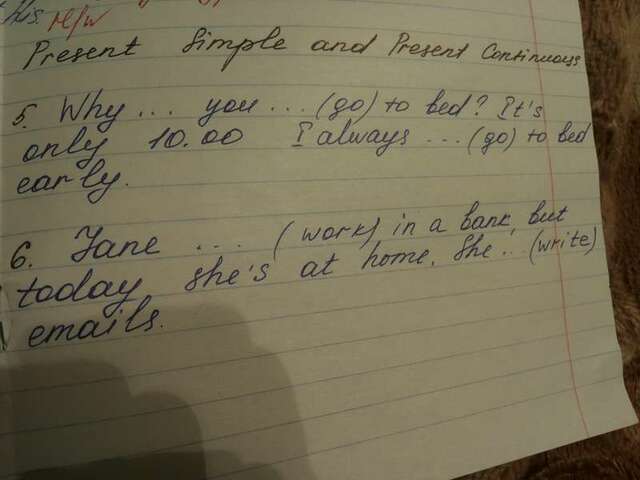 this. H/w
Present Simple and Present Continuous
5. Why ... you ... (go) to bed? It's
only 10.00 I always ... (go) to bed
early.
6. Jane ... (work) in a bank, but
today she's at home. She... (write)
emails.